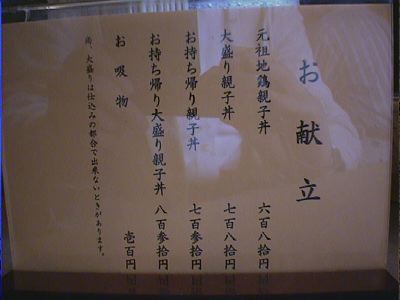 お献立
元祖地鶏親子丼 六百八拾円
大盛り親子丼 七百八拾円
お持ち帰り親子丼 七百参拾円
お持ち帰り大盛り親子丼 八百参拾円
お吸物 壱百円
尚、大盛りは仕込みの都合で出来ないときがあります。